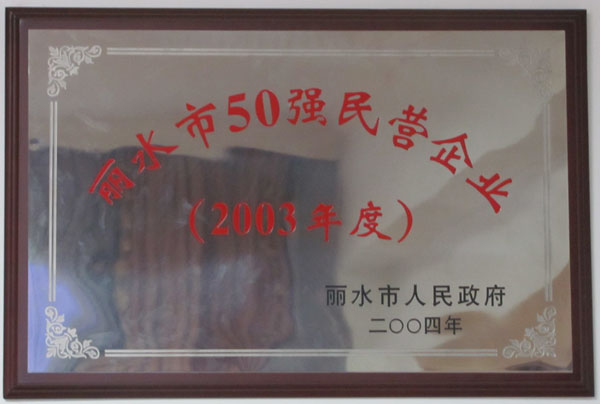 丽水市50强民营企业
（2003年度）
丽水市人民政府
二〇〇四年